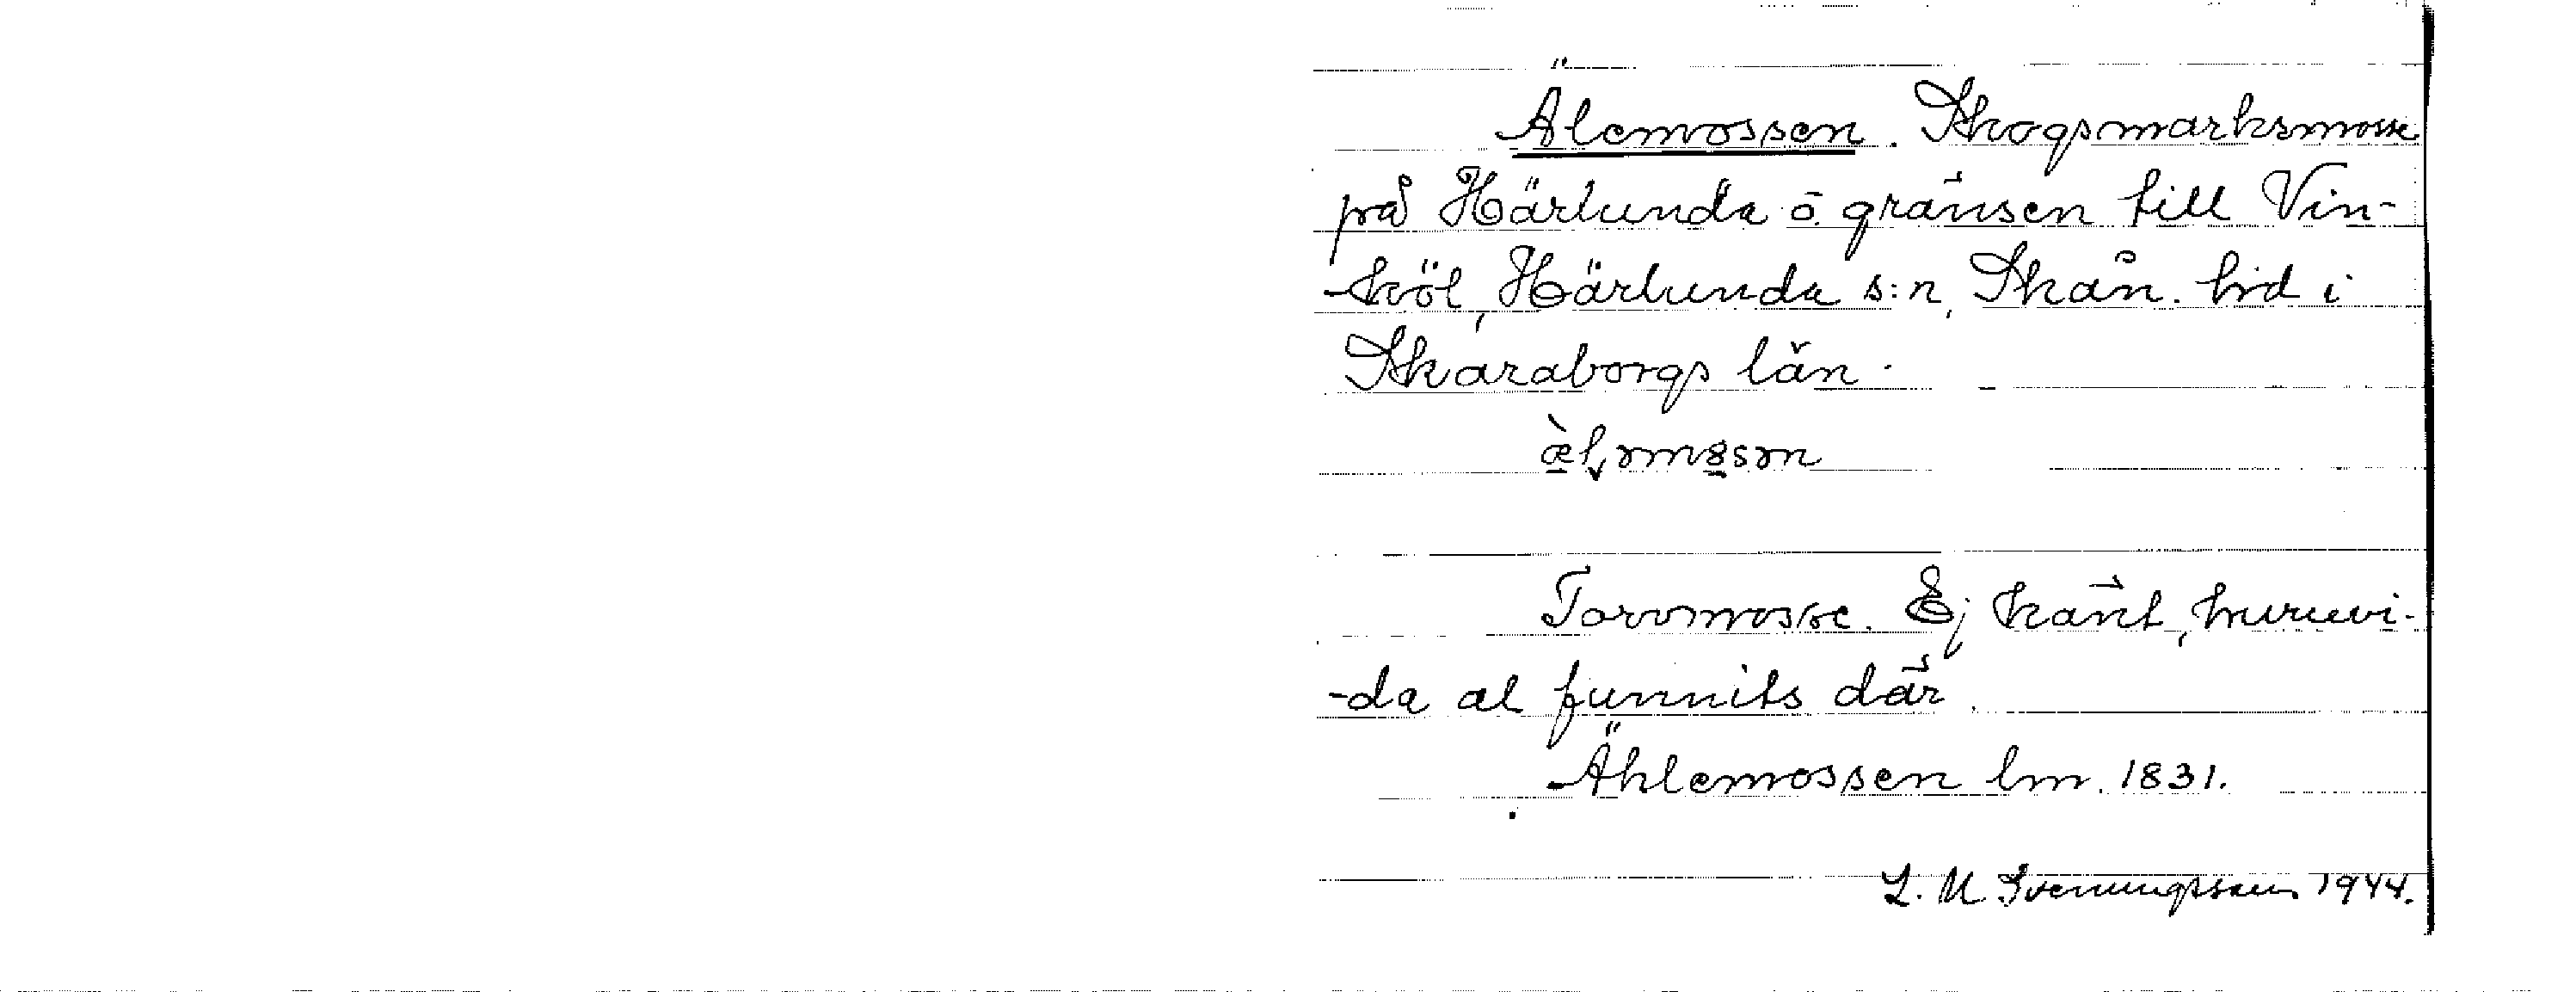 Älemossen. Skogsmarksmosse
på Härlunda ö. gränsen till Vin-
-köl, Härlunda s:n, Skån. hd i
Skaraborgs län.
Torvmosse. Ej känt, huruvi-
-da al funnits där.
Ählemossen lm. 1831.
L. M. Svenungsson 1944.